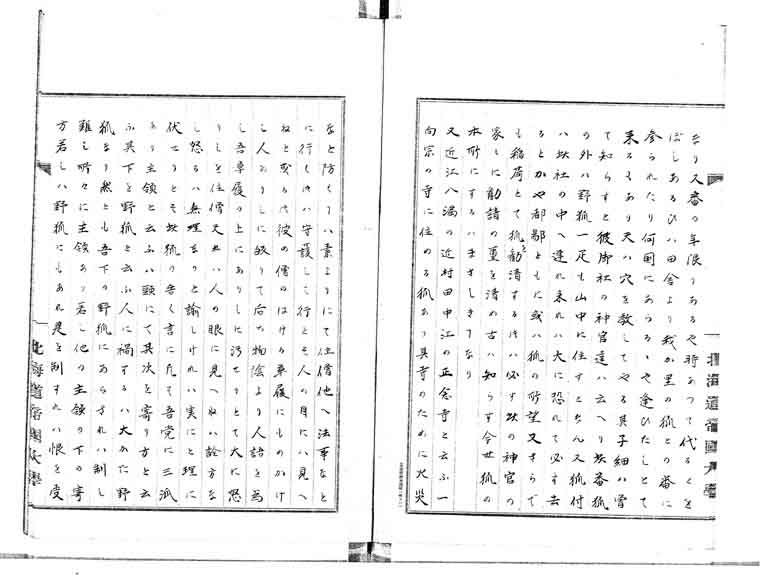 なり又番の年限りあるや将あつて代るくを
ばしあるひハ田舎より我か里の狐との番に
参られたり何国にあらるゝや逢ひたしとて
来るもあり夫ハ穴を教してやる其子細ハ曽
て知らすと彼御社の神官達ハ云へり坎番狐
の外ハ野狐一疋も山中に住すとなん又狐付
ハ坎社の中へ連れ来れハ大に恐れて必す去
るとかや都鄙ともに或ハ狐の所望又さらで
も稲荷とて狐を勧清するにハ必す坎の神官の
家しに勧請の璽を清の古ハ知らす今世狐の
本所にするハまさしきなり
又近江八満の近村田中江の正念寺と云ふ一
向宗の寺に住める狐あり其寺のために火災
北海道帝國大學
なと防くハ素よりにて住僧他へ法事なと
に行くにハ守護して行とそ人の目にハ見へ
ねと或る時彼の僧のはける草履にものかけ
し人ありしに殺りて后た物陰より人語を為
し吾草履の上にありしに汚せりとて大に怒
りしを住僧夫れハ人の眼に見へねハ詮方な
し怒るハ無理なりと諭しけれハ実にと理に
伏せりとそ坎狐の告く言に凡そ吾党に三派
あり主領と云ふハ頭にて其次を寄り方と云
ふ其下を野狐と云ふ人に禍するハ大かた野
狐なり然とも吾下の野狐にあらされハ制し
難し所々に主領あり若し他の主領の下の寄
方若しハ野狐にもあれ是を制すれハ恨を受
北海道帝國大學